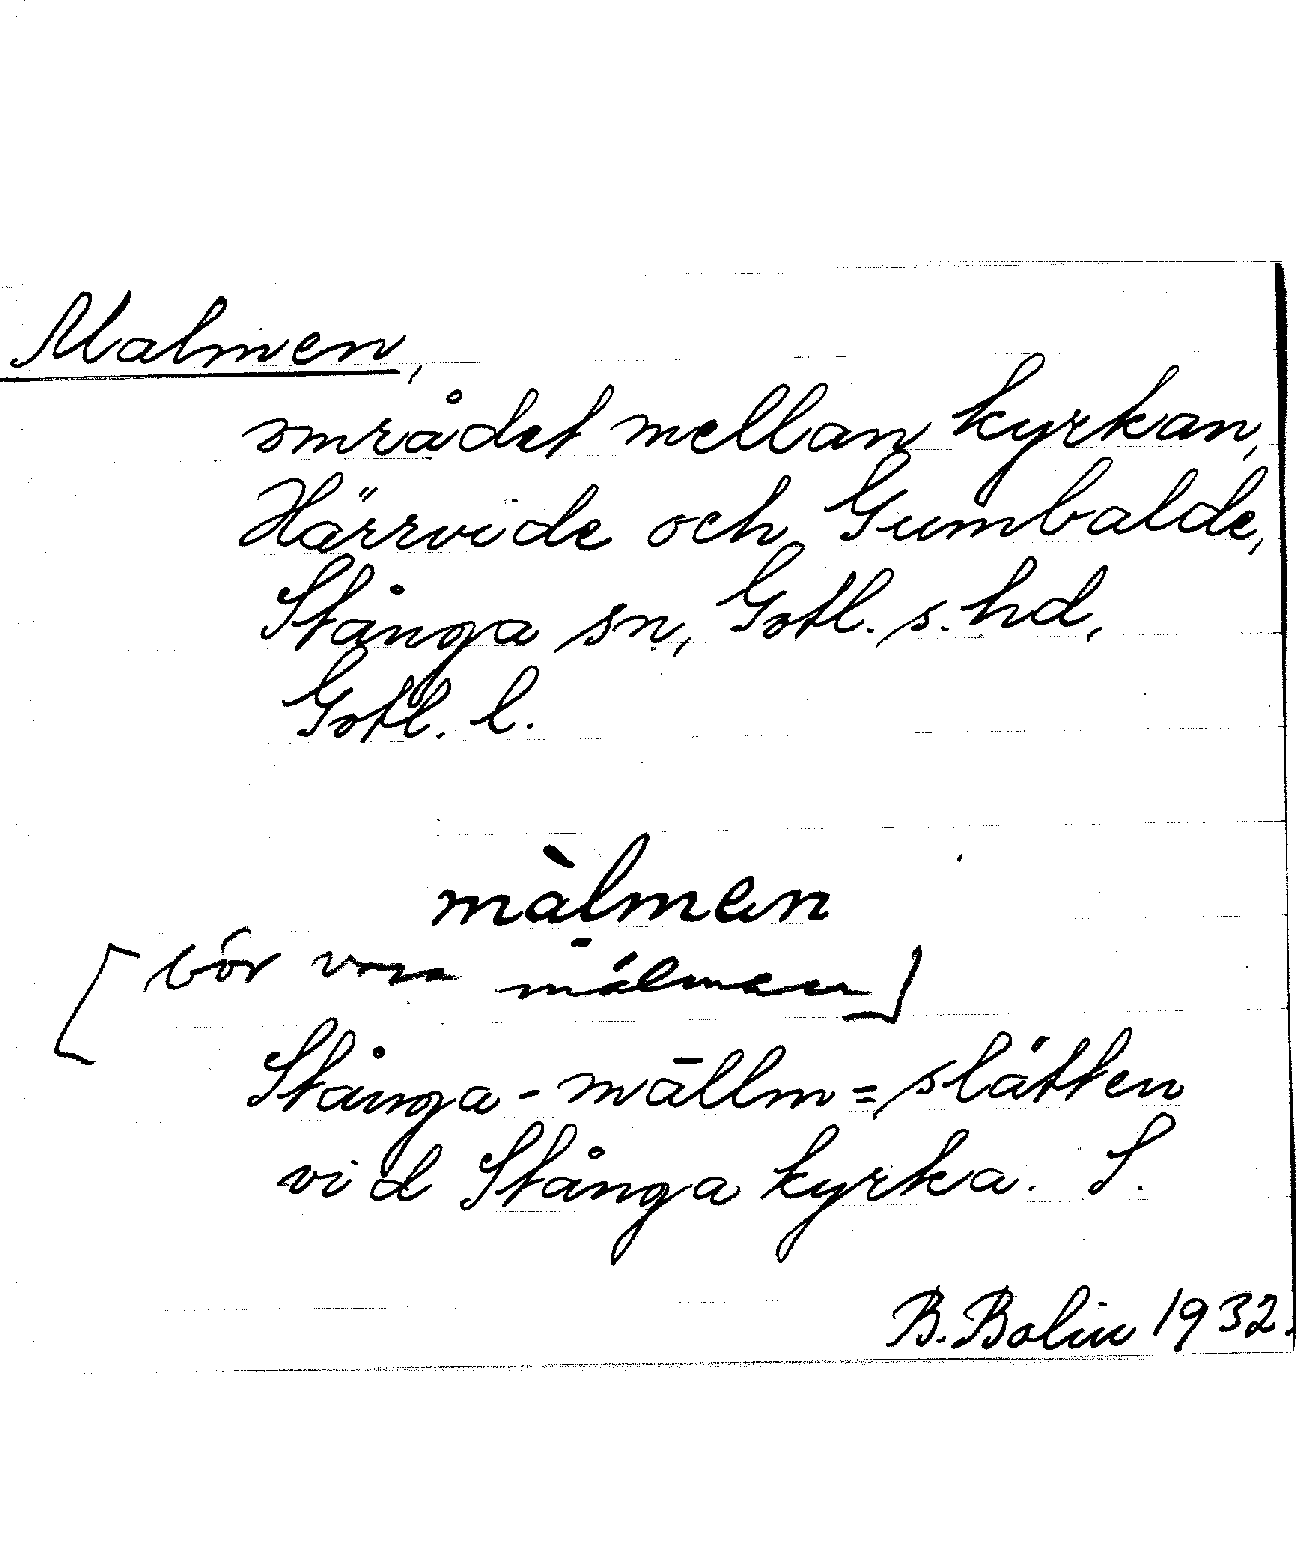 Malmen,
området mellan kyrkan,
Härrvide och Gumbalde,
Stånga sn, Gotl. s. hd,
Gotl. l.
màlmen
[bör vara målmen]
Stånga-mällm = slätten
vid Stånga kyrka. S.
B. Bolin 1932.